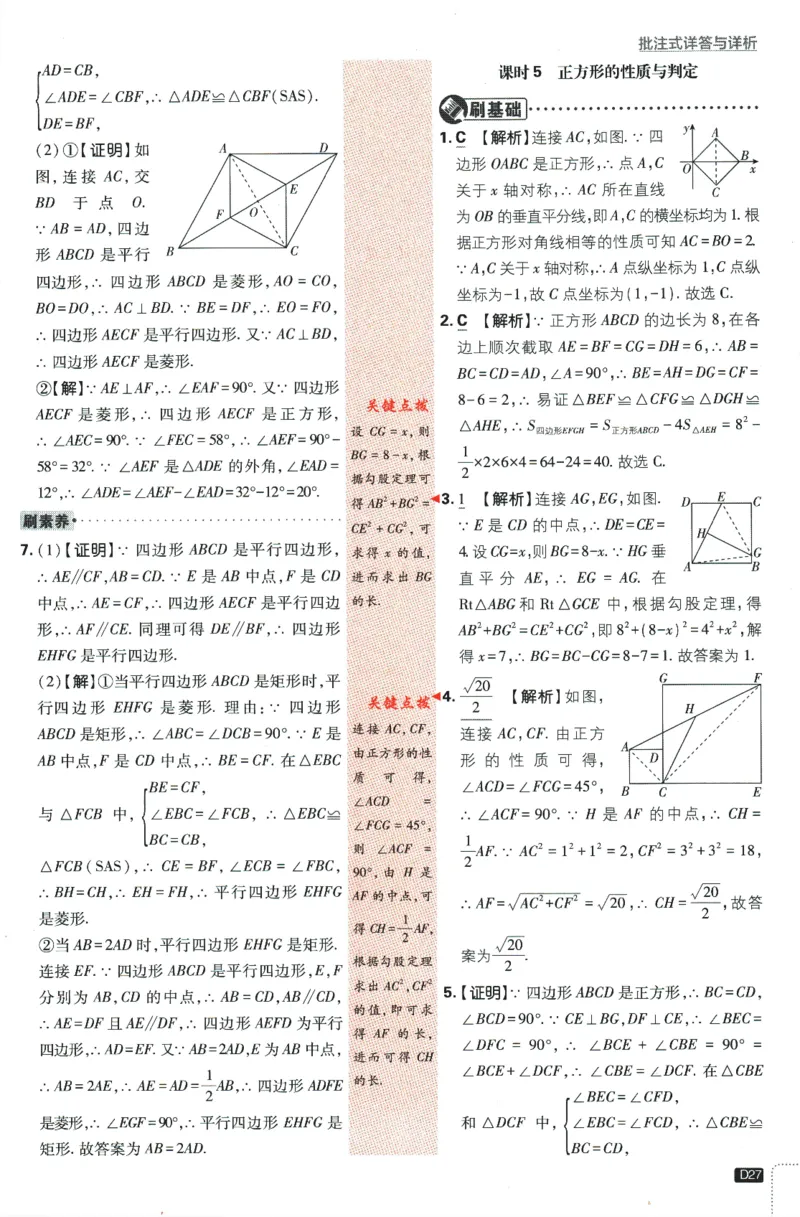 批注式详答与详析
AD=CB,
∠ADE=∠CBF,∴ △ADE≌△CBF(SAS).
DE=BF,
(2)①【证明】如
图,连接 AC,交
BD 于 点 O.
∵ AB=AD,四边
形 ABCD 是平行
A
D
E
F
O
B
C
四边形,∴ 四边形 ABCD 是菱形,AO=CO,
BO=DO,∴ AC⊥BD. ∵ BE=DF,∴ EO=FO,
∴ 四边形 AECF 是平行四边形. 又∵ AC⊥BD,
∴ 四边形 AECF 是菱形.
②【解】∵ AE⊥AF,∴ ∠EAF=90°. 又∵ 四边形
AECF 是菱形,∴ 四边形 AECF 是正方形,
∴ ∠AEC=90°. ∵ ∠FEC=58°,∴ ∠AEF=90°-
58°=32°. ∵ ∠AEF 是△ADE 的外角,∠EAD=
12°,∴ ∠ADE=∠AEF-∠EAD=32°-12°=20°.
刷素养
7. (1)【证明】∵ 四边形 ABCD 是平行四边形,
∴ AE∥CF,AB=CD. ∵ E 是 AB 中点,F 是 CD
中点,∴ AE=CF,∴ 四边形 AECF 是平行四边
形,∴ AF∥CE. 同理可得 DE∥BF,∴ 四边形
EHFG 是平行四边形.
(2)【解】①当平行四边形 ABCD 是矩形时,平
行四边形 EHFG 是菱形. 理由:∵ 四边形
ABCD 是矩形,∴ ∠ABC=∠DCB=90°. ∵ E 是
AB 中点,F 是 CD 中点,∴ BE=CF. 在△EBC
BE=CF,
与 △FCB 中, ∠EBC=∠FCB, ∴ △EBC≌
BC=CB,
△FCB(SAS),∴ CE=BF,∠ECB=∠FBC,
∴ BH=CH,∴ EH=FH,∴ 平行四边形 EHFG
是菱形.
②当 AB=2AD 时,平行四边形 EHFG 是矩形.
连接 EF. ∵ 四边形 ABCD 是平行四边形,E,F
分别为 AB,CD 的中点,∴ AB=CD,AB∥CD,
∴ AE=DF 且 AE∥DF,∴ 四边形 AEFD 为平行
四边形,∴ AD=EF. 又∵ AB=2AD,E 为 AB 中点,
∴ AB=2AE,∴ AE=AD=1/2AB,∴ 四边形 ADFE
是菱形,∴ ∠EGF=90°,∴ 平行四边形 EHFG 是
矩形. 故答案为 AB=2AD.
关键点拨
设 CG=x,则
BG=8-x,根
据勾股定理可
得 AB²+BG²=
CE²+CG²,可
求得 x 的值,
进而求出 BG
的长.
关键点拨
连接 AC,CF,
由正方形的性
质 可 得,
∠ACD =
∠FCG=45°,
则 ∠ACF =
90°,由 H 是
AF 的中点,可
得 CH=1/2AF,
根据勾股定理
求出 AC²,CF²
的值,即可求
得 AF 的长,
进而可得 CH
的长.
课时5 正方形的性质与判定
刷基础
1. C 【解析】连接 AC,如图. ∵ 四
边形 OABC 是正方形,∴ 点 A,C
关于 x 轴对称,∴ AC 所在直线
y
A
B
O
x
C
为 OB 的垂直平分线,即 A,C 的横坐标均为 1. 根
据正方形对角线相等的性质可知 AC=BO=2.
∵ A,C 关于 x 轴对称,∴ A 点纵坐标为 1,C 点纵
坐标为-1,故 C 点坐标为(1,-1). 故选 C.
2. C 【解析】∵ 正方形 ABCD 的边长为 8,在各
边上顺次截取 AE=BF=CG=DH=6,∴ AB=
BC=CD=AD,∠A=90°,∴ BE=AH=DG=CF=
8-6=2,∴ 易证△BEF≌△CFG≌△DGH≌
△AHE,∴ S四边形EFGH=S正方形ABCD-4S△AEH=8²-
1/2×2×6×4=64-24=40. 故选 C.
3. 1 【解析】连接 AG,EG,如图.
∵ E 是 CD 的中点,∴ DE=CE=
4. 设 CG=x,则 BG=8-x. ∵ HG 垂
直平分 AE,∴ EG=AG. 在
D
E
C
H
G
A
B
Rt△ABG 和 Rt△GCE 中,根据勾股定理,得
AB²+BG²=CE²+CG²,即 8²+(8-x)²=4²+x²,解
得 x=7,∴ BG=BC-CG=8-7=1. 故答案为 1.
4. √20/2 【解析】如图,
连接 AC,CF. 由正方
形 的 性 质 可 得,
∠ACD=∠FCG=45°,
G
F
H
A
D
B
C
E
∴ ∠ACF=90°. ∵ H 是 AF 的中点,∴ CH=
1/2AF. ∵ AC²=1²+1²=2,CF²=3²+3²=18,
∴ AF=√AC²+CF²=√20,∴ CH=√20/2,故答
案为√20/2.
5.【证明】∵ 四边形 ABCD 是正方形,∴ BC=CD,
∠BCD=90°. ∵ CE⊥BG,DF⊥CE,∴ ∠BEC=
∠DFC = 90°, ∴ ∠BCE + ∠CBE = 90° =
∠BCE+∠DCF,∴ ∠CBE=∠DCF. 在△CBE
∠BEC=∠CFD,
和 △DCF 中, ∠EBC=∠FCD, ∴ △CBE≌
BC=CD,
D27